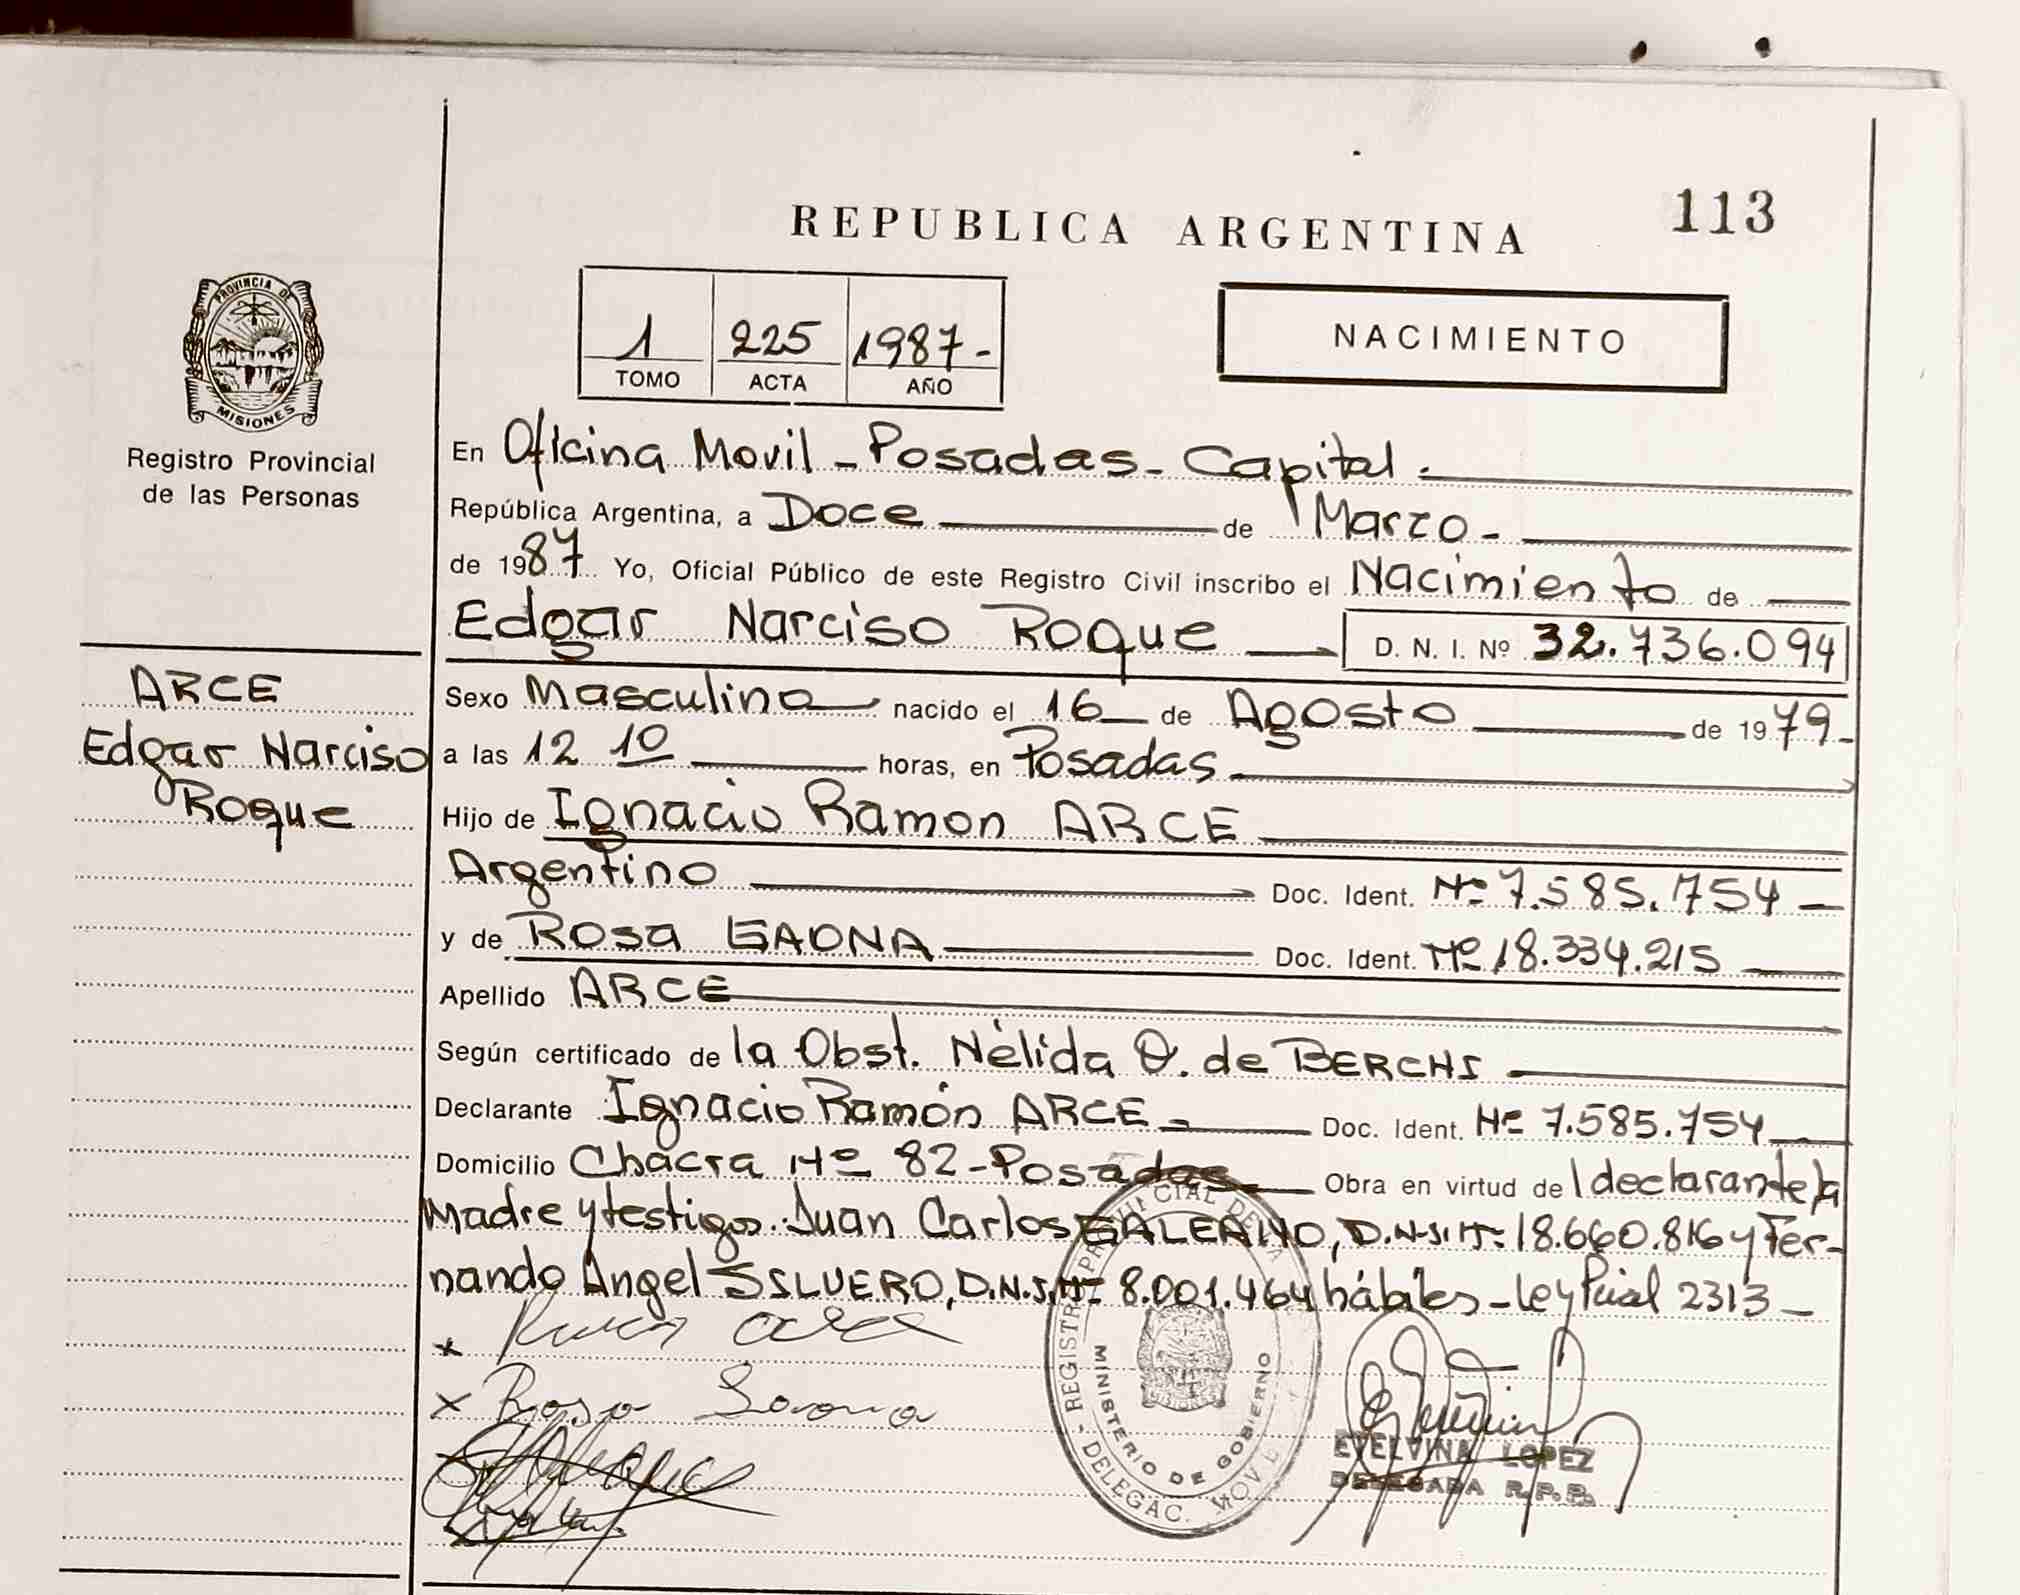 REPUBLICA ARGENTINA
113
PROVINCIA DE
MISIONES
Registro Provincial
de las Personas
1
TOMO
225
ACTA
1987-
AÑO
NACIMIENTO
En Oficina Movil - Posadas - Capital.
República Argentina, a Doce de Marzo -
de 1987 Yo, Oficial Público de este Registro Civil inscribo el Nacimiento de
Edgar Narciso Roque D. N. I. Nº 32.736.094
ARCE
Edgar Narciso
Roque
Sexo Masculino nacido el 16 de Agosto de 1979-
a las 12 10 horas, en Posadas
Hijo de Ignacio Ramon ARCE
Argentino Doc. Ident. Nº 7.585.754 -
y de Rosa GAONA Doc. Ident. Nº 18.334.215 -
Apellido ARCE
Según certificado de la Obst. Nélida O. de BERCHI
Declarante Ignacio Ramón ARCE - Doc. Ident. Nº 7.585.754
Domicilio Chacra Nº 82 - Posadas Obra en virtud de l declarante, la
Madre y testigos: Juan Carlos GALEANO, D.N.I. Nº 18.660.816 y Fer-
nando Angel SILUERO, D.N.I. Nº 8.001.464 hábiles - Ley Pcial 2313 -
x
x Rosa Gaona
REGISTRO PROVINCIAL DE LA
DELEGAC. MOVIL
MINISTERIO DE GOBIERNO
MISIONES
EVELVINA LOPEZ
DELEGADA R.P.P.